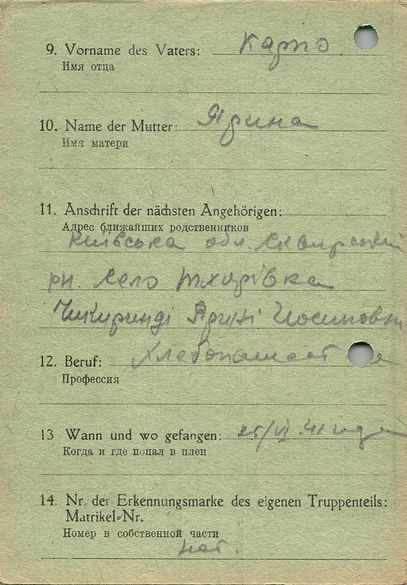 9. Vorname des Vaters: Карпо
Имя отца
10. Name der Mutter: Ярина
Имя матери
11. Anschrift der nächsten Angehörigen:
Адрес ближайших родственников
Київська обл. Сквирський
рн. село Тхорівка
Ярині Йосиповні
12. Beruf:
Профессия
13 Wann und wo gefangen: 25/VI 41 года
Когда и где попал в плен
14. Nr. der Erkennungsmarke des eigenen Truppenteils:
Matrikel-Nr.
Номер в собственной части
нет.